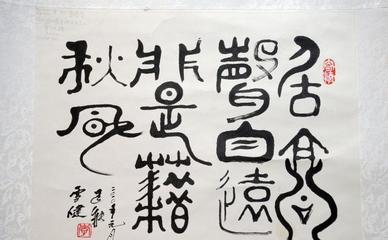 居高
聲自遠
非是藉
秋風
雪健